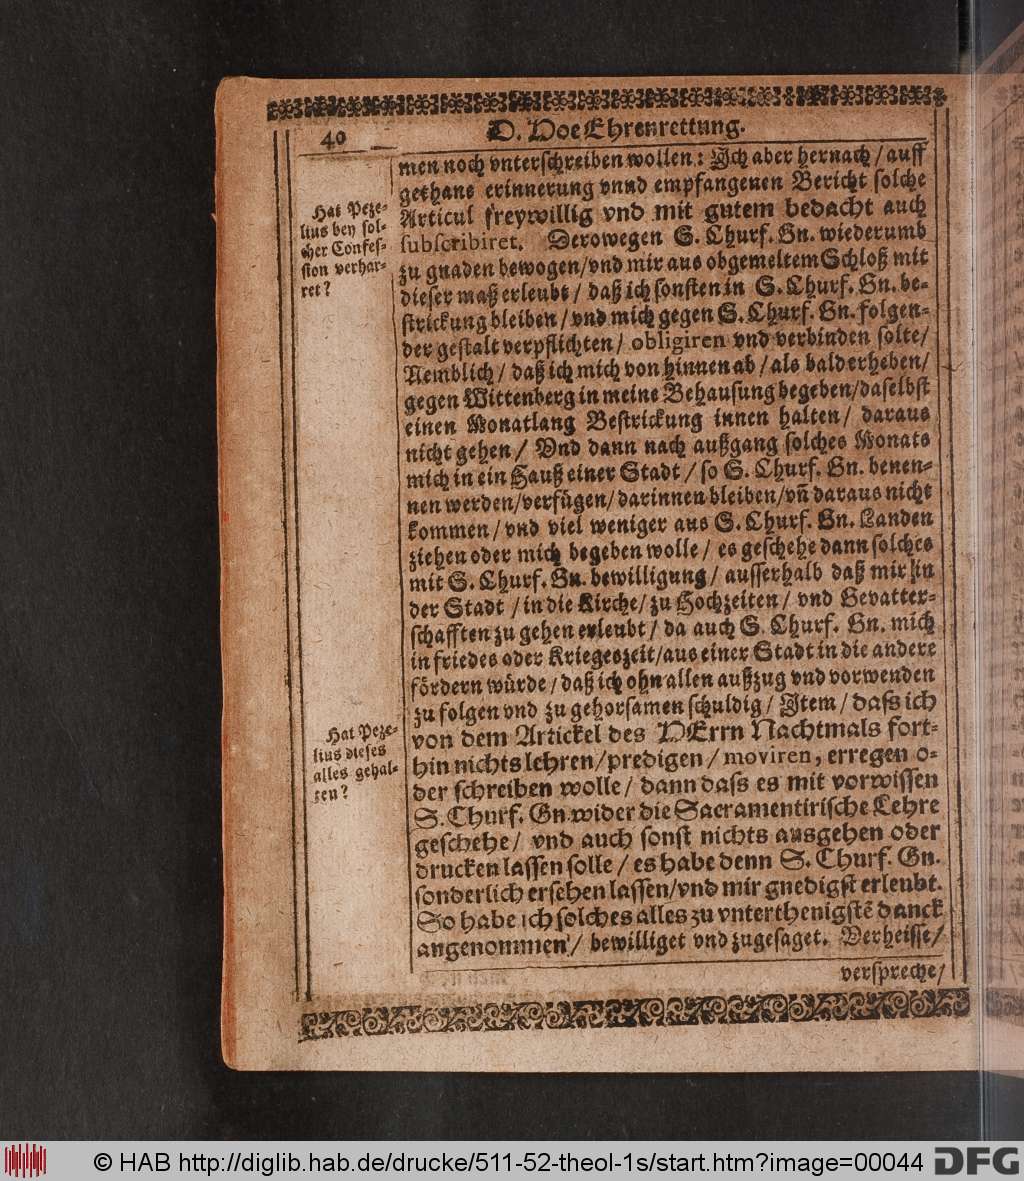 40
D. Hoe Ehrenrettung.
men noch vnterschreiben wollen: Ich aber hernach / auff
gethane erinnerung vnnd empfangenen Bericht solche
Articul freywillig vnd mit gutem bedacht auch
subscribiret. Derowegen S. Churf. Gn. wiederumb
zu gnaden bewogen/vnd mir aus obgemeltem Schloß mit
dieser maß erleubt / daß ich sonsten in S. Churf. Gn. be-
strickung bleiben / vnd mich gegen S. Churf. Gn. folgen-
der gestalt verpflichten / obligiren vnd verbinden solte/
Nemblich / daß ich mich von hinnen ab / als bald erheben/
gegen Wittenberg in meine Behausung begeben/daselbst
einen Monatlang Bestrickung innen halten/ daraus
nicht gehen / Vnd dann nach außgang solches Monats
mich in ein Hauß einer Stadt / so S. Churf. Gn. benen-
nen werden/verfügen/darinnen bleiben/vñ daraus nicht
kommen / vnd viel weniger aus S. Churf. Gn. Landen
ziehen oder mich begeben wolle / es geschehe dann solches
mit S. Churf. Gn. bewilligung / ausserhalb daß mir in
der Stadt / in die Kirche/ zu Hochzeiten / vnd Gevatter-
schafften zu gehen erleubt / da auch S. Churf. Gn. mich
in friedes oder Kriegeszeit/aus einer Stadt in die andere
fördern würde / daß ich ohn allen außzug vnd vorwenden
zu folgen vnd zu gehorsamen schuldig / Item / dass ich
von dem Artickel des HErrn Nachtmals fort-
hin nichts lehren/predigen / moviren, erregen o-
der schreiben wolle / dann dass es mit vorwissen
S. Churf. Gn. wider die Sacramentirische Lehre
geschehe/ vnd auch sonst nichts ausgehen oder
drucken lassen solle / es habe denn S. Churf. Gn.
sonderlich ersehen lassen/vnd mir gnedigst erleubt.
So habe ich solches alles zu vnterthenigstẽ danck
angenommen / bewilliget vnd zugesaget. Verheisse/
verspreche/
Hat Peze-
lius bey sol-
cher Confes-
sion verhar-
ret?
Hat Peze-
lius dieses
alles gehal-
ten?
© HAB http://diglib.hab.de/drucke/511-52-theol-1s/start.htm?image=00044
DFG